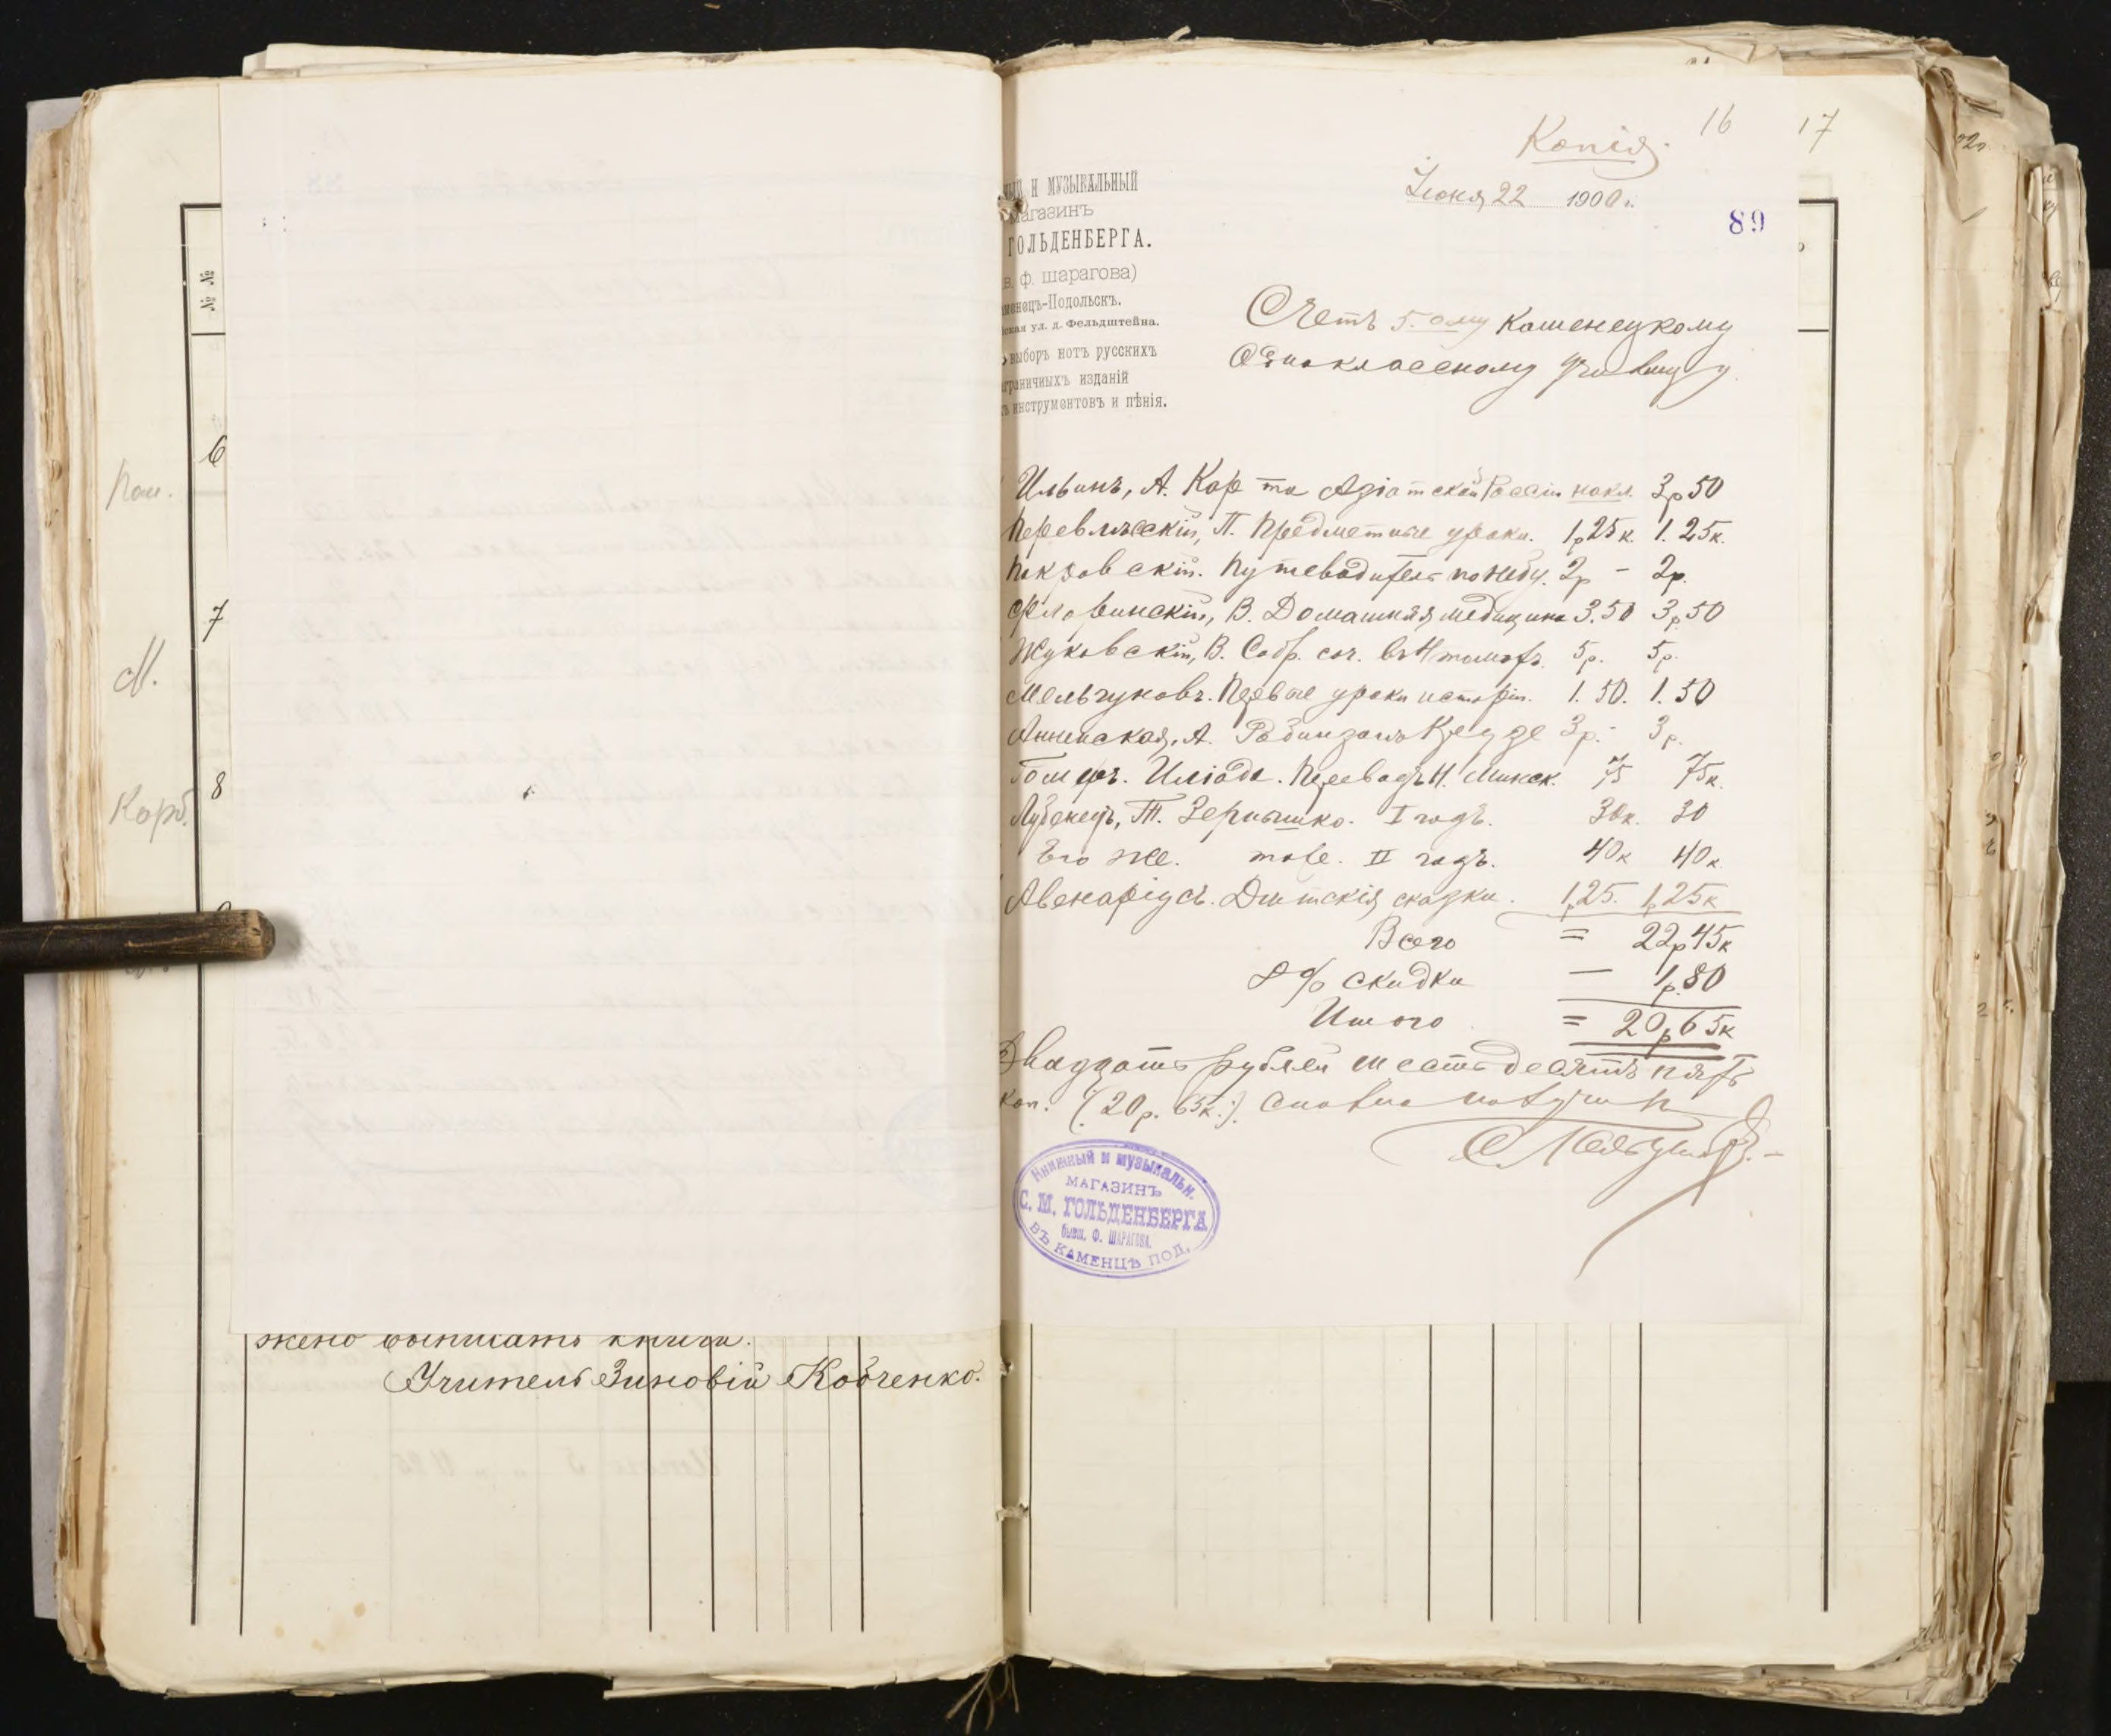 № №
6
7
М.
8
Корб.
жено выписать книги.
Учитель Зиновій Кобченко.
Копія.
16
17
Іюня 22 1900 г.
89
ный и музыкальный
магазинъ
ГОЛЬДЕНБЕРГА.
в. ф. шарагова)
менецъ-Подольскъ.
ская ул. д. Фельдштейна.
выборъ нотъ русскихъ
граничныхъ изданій
инструментовъ и пѣнія.
Счетъ 5.ому Каменецкому
Одноклассному Училищу
Ильинъ, А. Карта Азіатской Россіи накл. 3р50
Перевлѣсскій, П. Предметные уроки. 1р25к. 1.25к.
Покровскій. Путеводитель по небу. 2р - 2р.
Флоринскій, В. Домашняя медицина 3.50 3р50
Жуковскій, В. Собр. соч. въ 4 томахъ. 5р. 5р.
Мельчуковъ. Первые уроки исторіи. 1.50. 1.50
Анненская, А. Робинзонъ Крузе 3р.- 3р.
Гомеръ. Иліада. Переводъ Н. Минск. 75 75к.
Лубенецъ, Т. Зернышко. I годъ. 30к. 30
Его же. тоже. II годъ. 40к 40к
Авенаріусъ. Дѣтскія сказки. 1р25. 1р25к
Всего = 22р45к
8% скидки — 1р.80
Итого = 20р65к
Двадцать рублей шестьдесятъ пять
коп. (20р. 65к.). сполна получилъ
Книжный и музыкальн.
МАГАЗИНЪ
С. М. ГОЛЬДЕНБЕРГА
бывш. Ф. ШАРАГОВА.
ВЪ КАМЕНЦѢ ПОД.